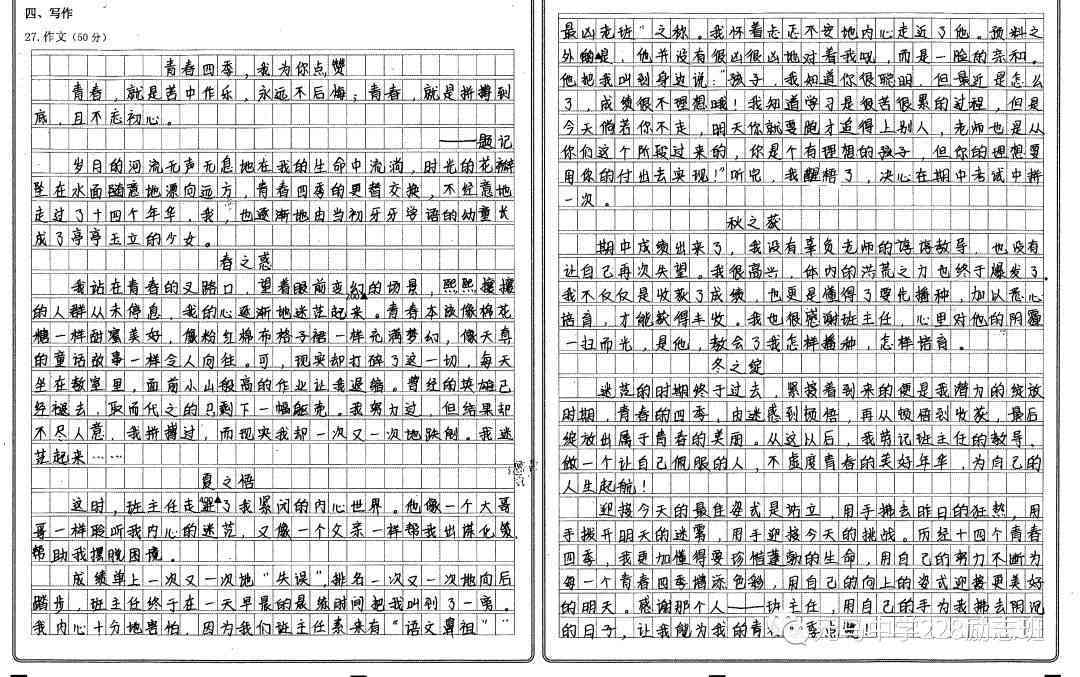 四、写作
27.作文（50分）
青春四季，我为你点赞
青春，就是苦中作乐，永远不后悔；青春，就是拼搏到
底，且不忘初心。
——题记
岁月的河流无声无息地在我的生命中流淌，时光的花瓣
坠在水面随意地漂向远方，青春四季的更替交换，不经意地
走过了十四个年华，我，也逐渐地由当初牙牙学语的幼童长
成了亭亭玉立的少女。
春之惑
我站在青春的叉路口，望着眼前变幻的场景，熙熙攘攘
200▲
的人群从未停息，我的心逐渐地迷茫起来。青春本该像棉花
糖一样甜蜜美好，像粉红棉布格子裙一样充满梦幻，像天真
的童话故事一样令人向往。可，现实却打碎了这一切，每天
坐在教室里，面前小山般高的作业让我退缩。曾经的英雄已
经褪去，取而代之的只剩下一幅躯壳。我努力过，但结果却
不尽人意，我拼搏过，而现实我却一次又一次地跌倒。我迷
茫起来……
夏之悟
400▲
这时，班主任走进了我紧闭的内心世界。他像一个大哥
哥一样聆听我内心的迷茫，又像一个父亲一样帮我出谋化策
帮助我摆脱困境。
成绩单上一次又一次地“失误”，排名一次又一次地向后
踏步，班主任终于在一天早晨的晨练时间把我叫到了一旁。
我内心十分地害怕，因为我们班主任素来有“语文鼻祖”“
最凶老班”之称。我怀着忐忑不安地内心走近了他。预料之
外的是，他并没有很凶很凶地对着我吼，而是一脸的亲和。
他把我叫到身边说：“孩子，我知道你很聪明，但最近是怎么
了，成绩很不理想哦！我知道学习是很苦很累的过程，但是
今天倘若你不走，明天你就要跑才追得上别人，老师也是从
你们这个阶段过来的，你是个有理想的孩子，但你的理想要
用你的付出去实现！”听完，我醒悟了，决心在期中考试中拼
一次。
秋之获
期中成绩出来了，我没有辜负老师的谆谆教导，也没有
让自己再次失望。我很高兴，体内的洪荒之力也终于爆发了。
我不仅仅是收获了成绩，也更是懂得了要先播种，加以悉心
培育，才能获得丰收。我也很感谢班主任，心里对他的阴霾
一扫而光，是他，教会了我怎样播种，怎样培育。
冬之绽
迷茫的时期终于过去，紧接着到来的便是我潜力的绽放
时期，青春的四季，由迷惑到顿悟，再从顿悟到收获，最后
绽放出属于青春的美丽。从这以后，我剪记班主任的教导，
做一个让自己佩服的人，不虚度青春的美好年华，为自己的
人生起航！
迎接今天的最佳姿式是站立，用手拂去昨日的狂热，用
手拨开明天的迷雾，用手迎接今天的挑战。历经十四个青春
四季，我更加懂得要珍惜蓬勃的生命，用自己的努力不断为
每一个青春四季增添色彩，用自己的向上的姿式迎接更美好
的明天。感谢那个人——班主任，用自己的手为我拂去阴沉
的日子，让我能为我的青春四季点赞！
中学228励志班